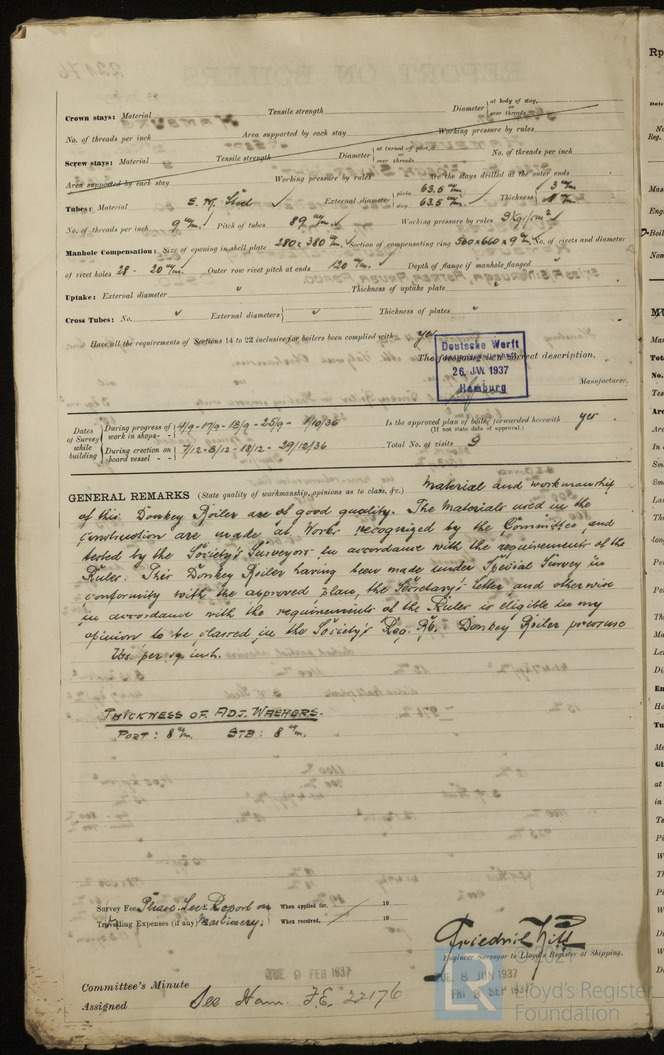 Crown stays: Material Tensile strength Diameter { at body of stay, or over threads
No. of threads per inch Area supported by each stay Working pressure by rules
Screw stays: Material Tensile strength Diameter { at turned off part, or over threads No. of threads per inch
Area supported by each stay Working pressure by rules Are the stays drilled at the outer ends
Tubes: Material S. M. Steel External diameter { plain 63.5 m/m stay 63.5 m/m Thickness { 3 m/m 8 m/m
No. of threads per inch 9 m/m. Pitch of tubes 89 m/m. Working pressure by rules 9 kg/cm²
Manhole Compensation: Size of opening in shell plate 280 x 380 m/m. Section of compensating ring 560x660x9 m/m. No. of rivets and diameter
of rivet holes 28 - 20 m/m. Outer row rivet pitch at ends 120 m/m. Depth of flange if manhole flanged
Uptake: External diameter Thickness of uptake plate
Cross Tubes: No. External diameters { Thickness of plates
Have all the requirements of Sections 14 to 22 inclusive for boilers been complied with yes
The foregoing is a correct description,
Deutsche Werft
26. JAN. 1937
Hamburg
Manufacturer.
Dates of Survey while building
During progress of work in shops - - { 4/9 - 17/9 - 18/9 - 25/9 - 1/10/36
During erection on board vessel - - { 7/12 - 8/12 - 18/12 - 29/12/36
Is the approved plan of boiler forwarded herewith yes
(If not state date of approval.)
Total No. of visits 9
GENERAL REMARKS (State quality of workmanship, opinions as to class, &c.) Material and workmanship
of this Donkey Boiler are of good quality. The Materials used in the
construction are made at Works recognized by the Committee, and
tested by the Society's Surveyors in accordance with the requirements of the
Rules. This Donkey Boiler having been made under Special Survey in
conformity with the approved plan, the Secretary's letter and otherwise
in accordance with the requirements of the Rules is eligible in my
opinion to be classed in the Society's Reg. Bk. Donkey Boiler pressure
lbs. per sq. inch.
THICKNESS OF ADJ. WASHERS.
PORT: 8 m/m. STB: 8 m/m.
Survey Fee Please See Report on When applied for, 19
Travelling Expenses (if any) Machinery; When received, 19
Engineer Surveyor to Lloyd's Register of Shipping.
TUE 9 FEB 1937
TUE 8 JUN 1937
FRI SEP 1937
Committee's Minute
Assigned See Ham. F.E. 22176
© 2021
Lloyd's Register
Foundation
LR